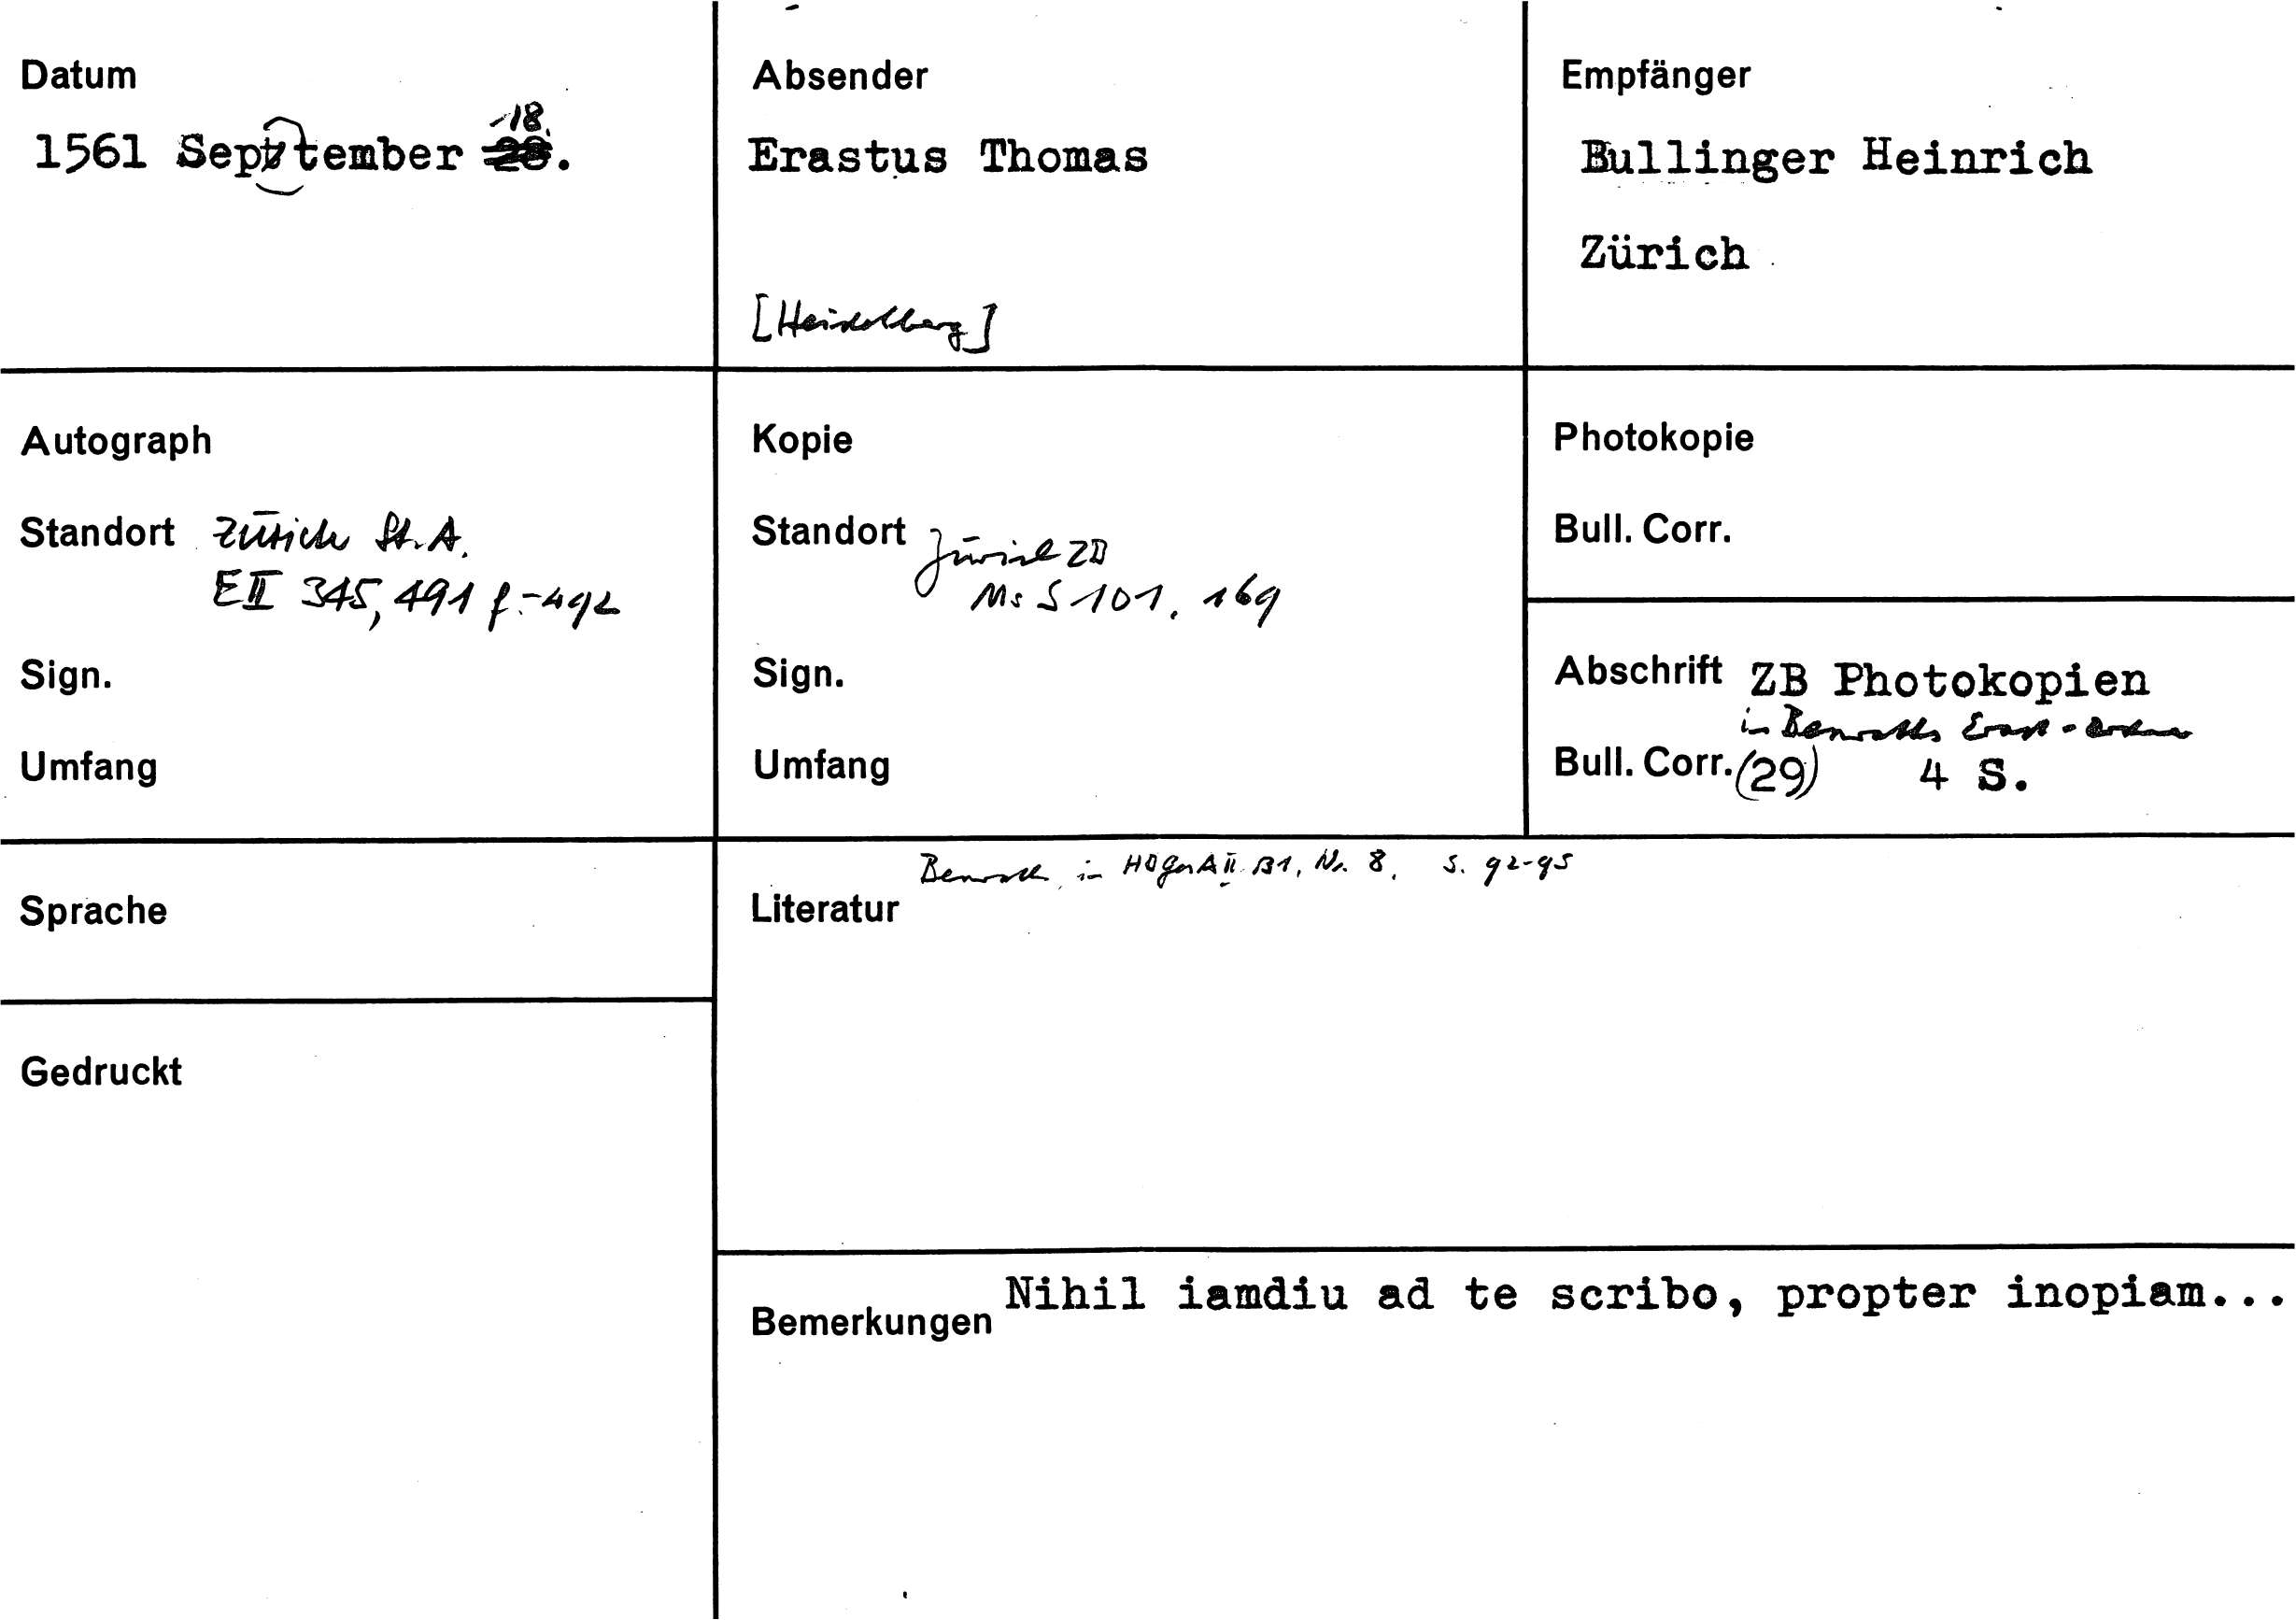 Datum
1561 September 28. 18.
Absender
Erastus Thomas
[Heidelberg]
Empfänger
Bullinger Heinrich
Zürich
Autograph
Standort Zürich St.A.
E II 345, 491 f.-492
Sign.
Umfang
Kopie
Standort Zürich ZB
Ms S 101, 169
Sign.
Umfang
Photokopie
Bull. Corr.
Abschrift ZB Photokopien
in Benraths
Bull. Corr. (29) 4 S.
Sprache
Gedruckt
Benrath in II B1, Nr. 8, S. 92-95
Literatur
Nihil iamdiu ad te scribo, propter inopiam...
Bemerkungen